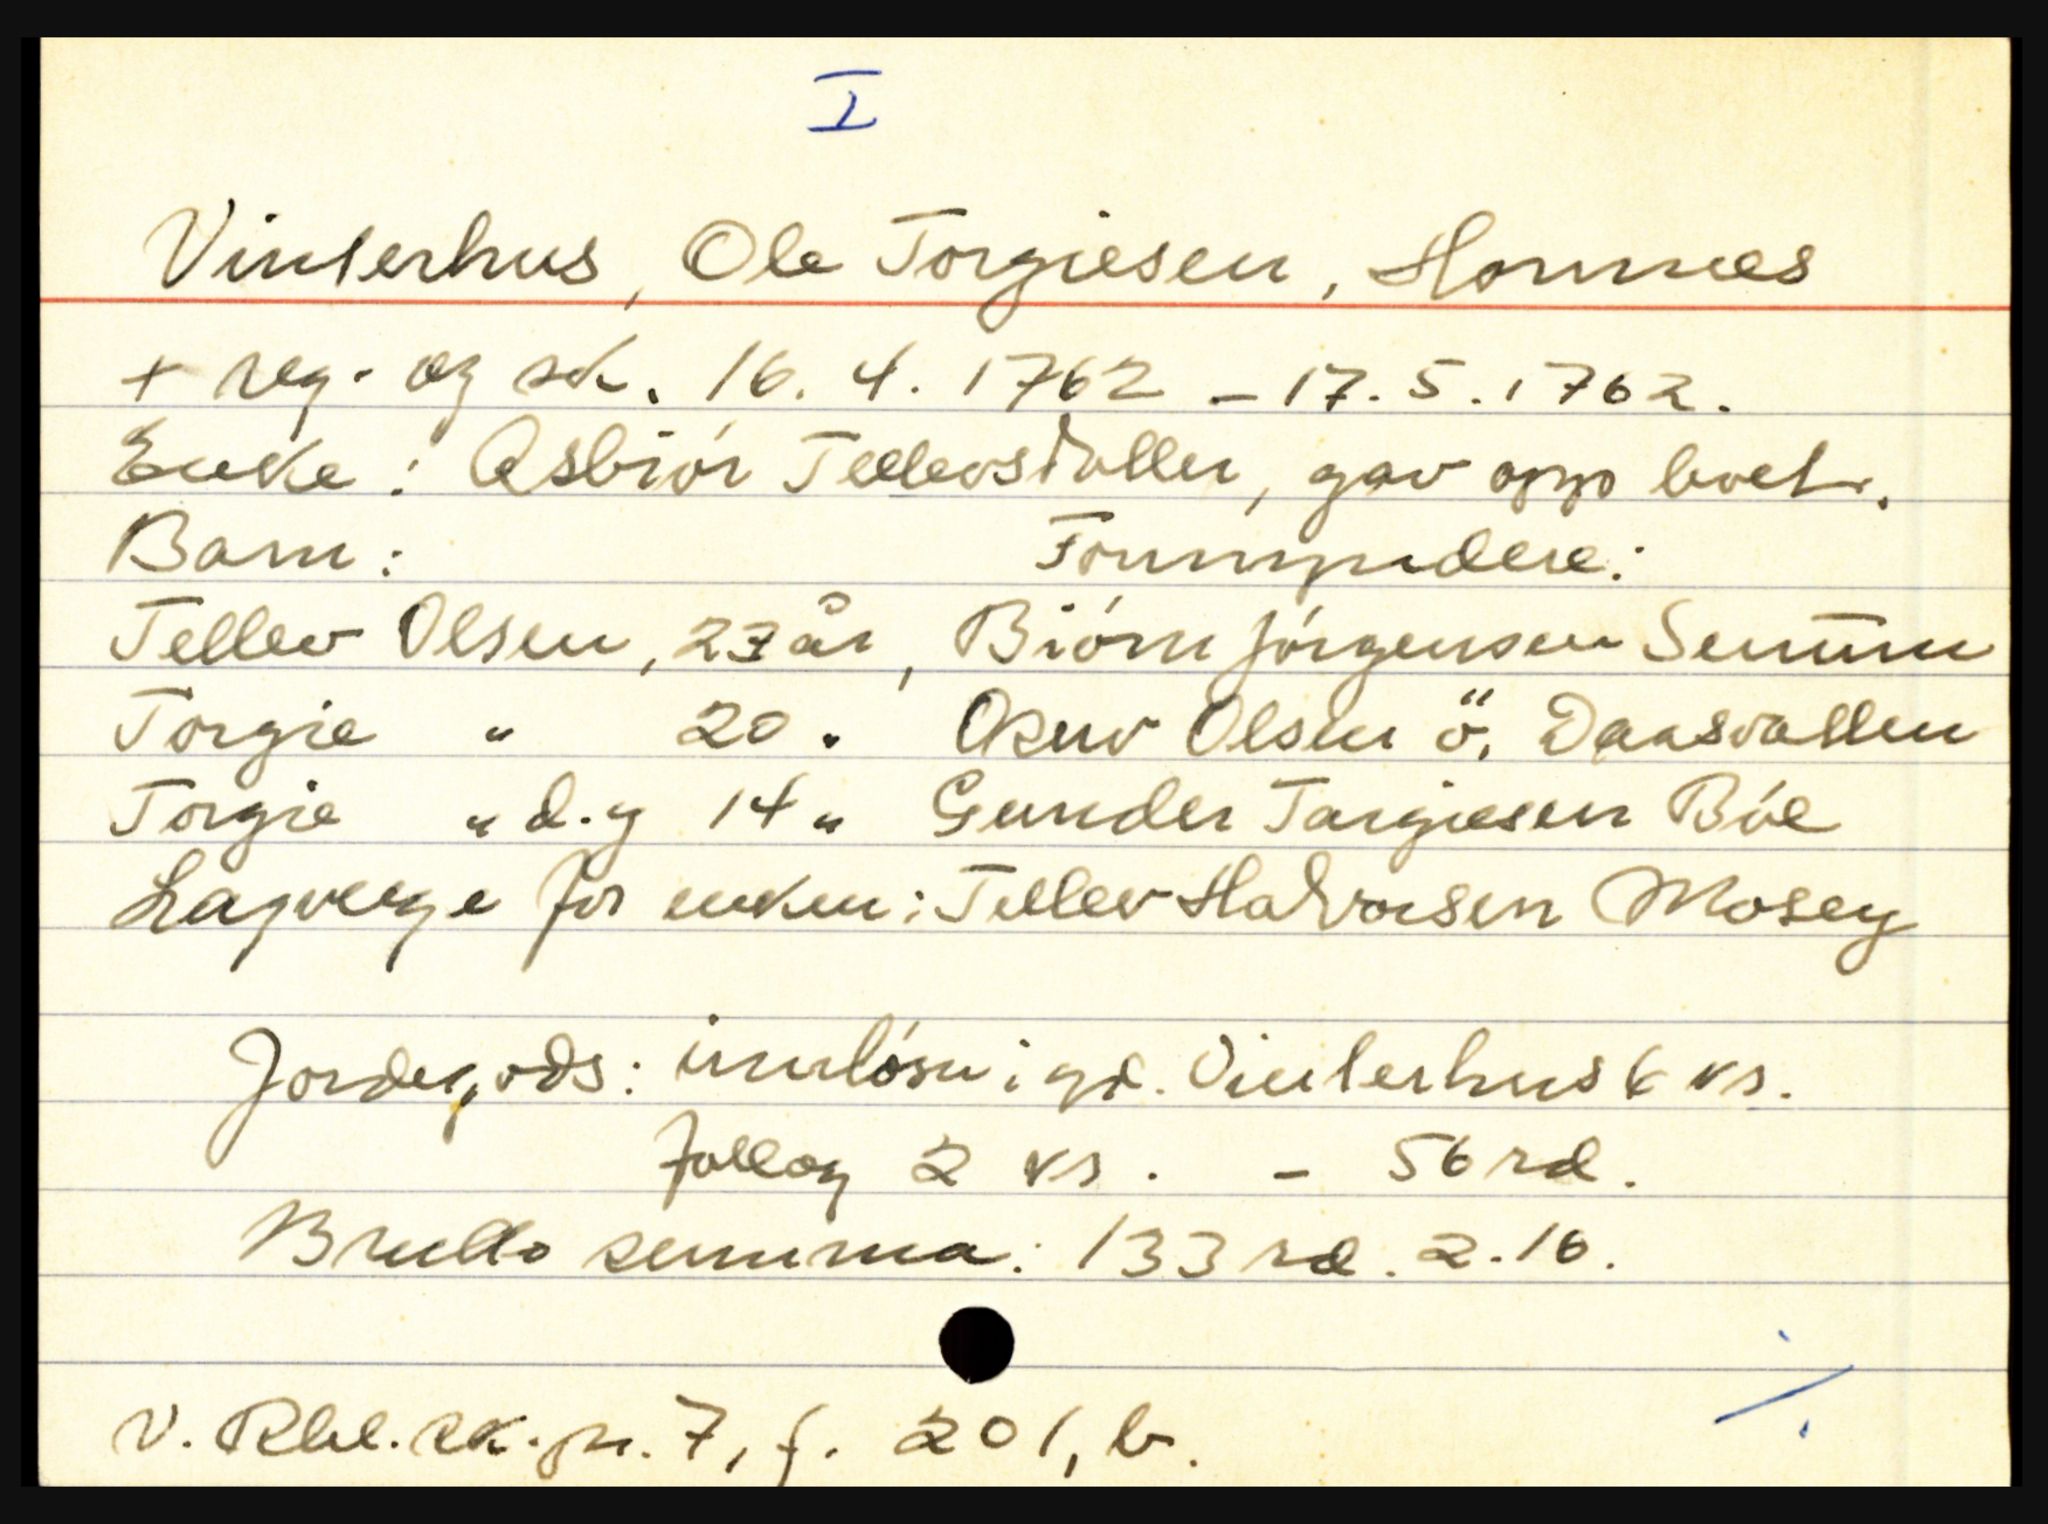 I
Vinterhus, Ole Torgiesen, Hornnes
+ reg. og sk. 16.4.1762 - 17.5.1762.
Enke: Asbiór Tellevsdatter, gav opp boet.
Barn: Formyndere:
Tellev Olsen, 23 år, Biórn Jórgensen Senum
Torgie " 20 " Asuv Olsen ö. Daasvatten
Torgie " d.y 14 " Gunder Targiesen Bóe
Lagverge for enken: Tellev Halvorsen Mosey
Jordegods: innlósn i gd. Vinterhus 6 ks.
2 ks. - 56 rd.
Brutto summa: 133 rd. 2.16.
V. Rbl. sk.pr. 7, f. 201, b.